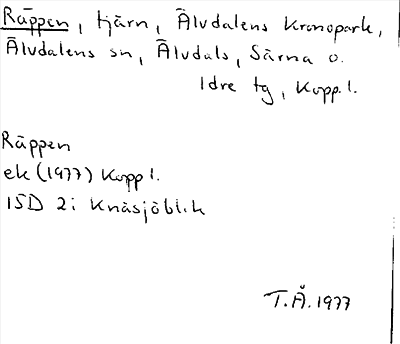 Räppen, tjärn, Älvdalens kronopark,
Älvdalens sn, Älvdals, Särna o.
Idre tg, Kopp. l.
Räppen
ek (1977) Kopp l.
15D 2i Knäsjöblik
T.Å. 1977